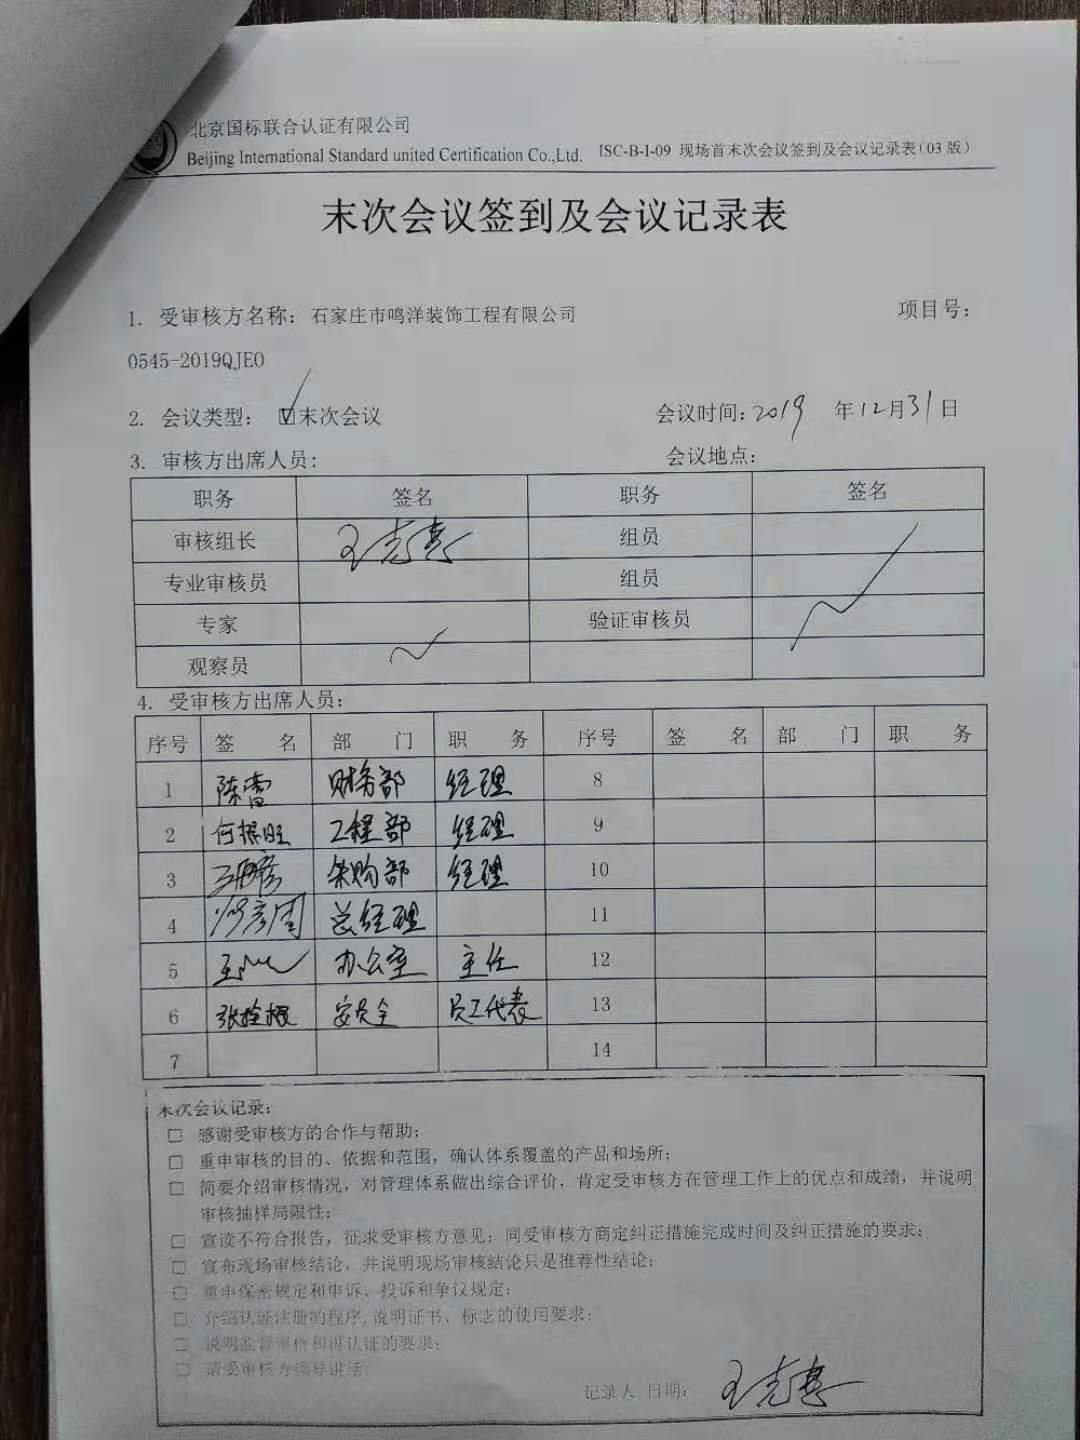 北京国标联合认证有限公司
Beijing International Standard united Certification Co.,Ltd. ISC-B-I-09 现场首末次会议签到及会议记录表(03 版)
末次会议签到及会议记录表
1. 受审核方名称: 石家庄市鸣洋装饰工程有限公司 项目号:
0545-2019QJEO
2. 会议类型: ☑末次会议 会议时间: 2019 年12月31日
3. 审核方出席人员: 会议地点:
职务 签名 职务 签名
审核组长 组员
专业审核员 组员
专家 验证审核员
观察员
4. 受审核方出席人员:
序号 签 名 部 门 职 务 序号 签 名 部 门 职 务
1 陈雷 财务部 经理 8
2 何振旺 工程部 经理 9
3 采购部 经理 10
4 总经理 11
5 办公室 主任 12
6 张拴根 安全 员工代表 13
7 14
末次会议记录:
□ 感谢受审核方的合作与帮助;
□ 重申审核的目的、依据和范围, 确认体系覆盖的产品和场所;
□ 简要介绍审核情况, 对管理体系做出综合评价, 肯定受审核方在管理工作上的优点和成绩, 并说明
审核抽样局限性;
□ 宣读不符合报告, 征求受审核方意见; 同受审核方商定纠正措施完成时间及纠正措施的要求;
□ 宣布现场审核结论, 并说明现场审核结论只是推荐性结论;
□ 重申保密规定和申诉、投诉和争议规定;
□ 介绍认证注册的程序, 说明证书、标志的使用要求;
□ 说明监督审核和再认证的要求;
□ 请受审核方领导讲话;
记录人 日期: